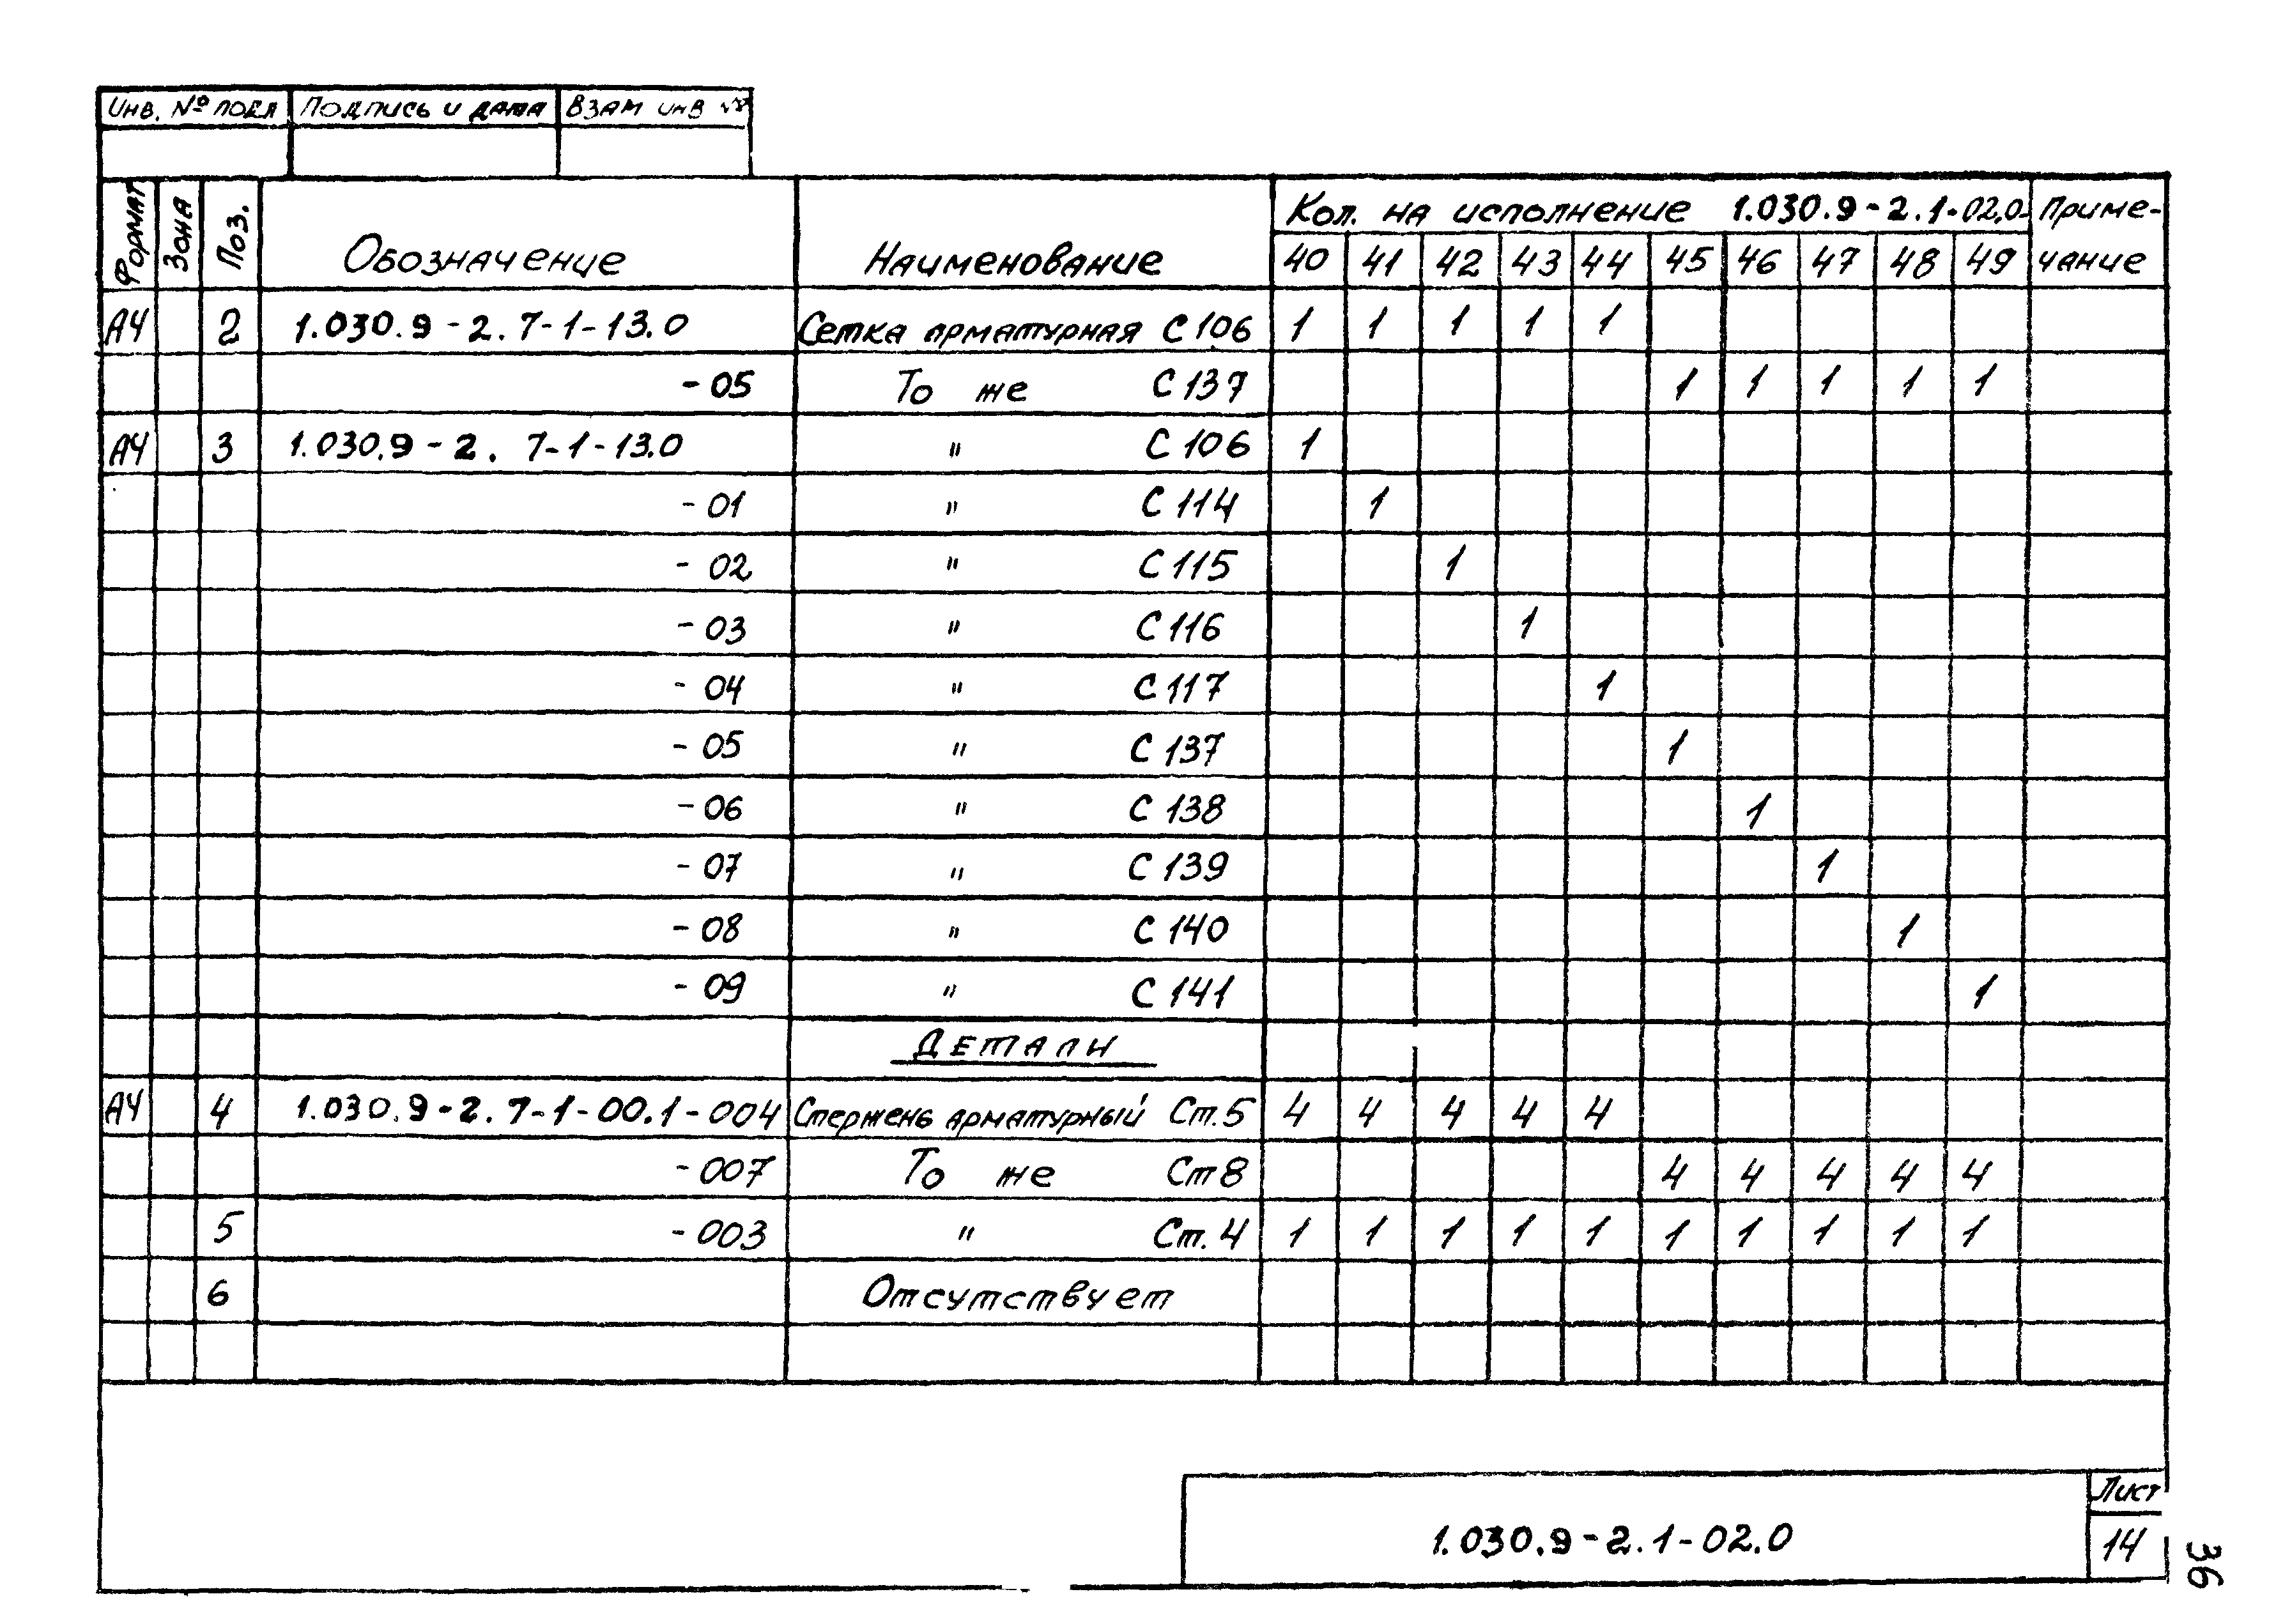 Инв. № подл Подпись и дата Взам инв №
Формат Зона Поз. Обозначение Наименование Кол. на исполнение 1.030.9-2.1-02.0- Приме-
40 41 42 43 44 45 46 47 48 49 чание
А4 2 1.030.9-2.7-1-13.0 Сетка арматурная С 106 1 1 1 1 1
-05 То же С 137 1 1 1 1 1
А4 3 1.030.9-2.7-1-13.0 " С 106 1
-01 " С 114 1
-02 " С 115 1
-03 " С 116 1
-04 " С 117 1
-05 " С 137 1
-06 " С 138 1
-07 " С 139 1
-08 " С 140 1
-09 " С 141 1
Детали
А4 4 1.030.9-2.7-1-00.1-004 Стержень арматурный Ст.5 4 4 4 4 4
-007 То же Ст 8 4 4 4 4 4
5 -003 " Ст. 4 1 1 1 1 1 1 1 1 1 1
6 Отсутствует
1.030.9-2.1-02.0 Лист
14
36